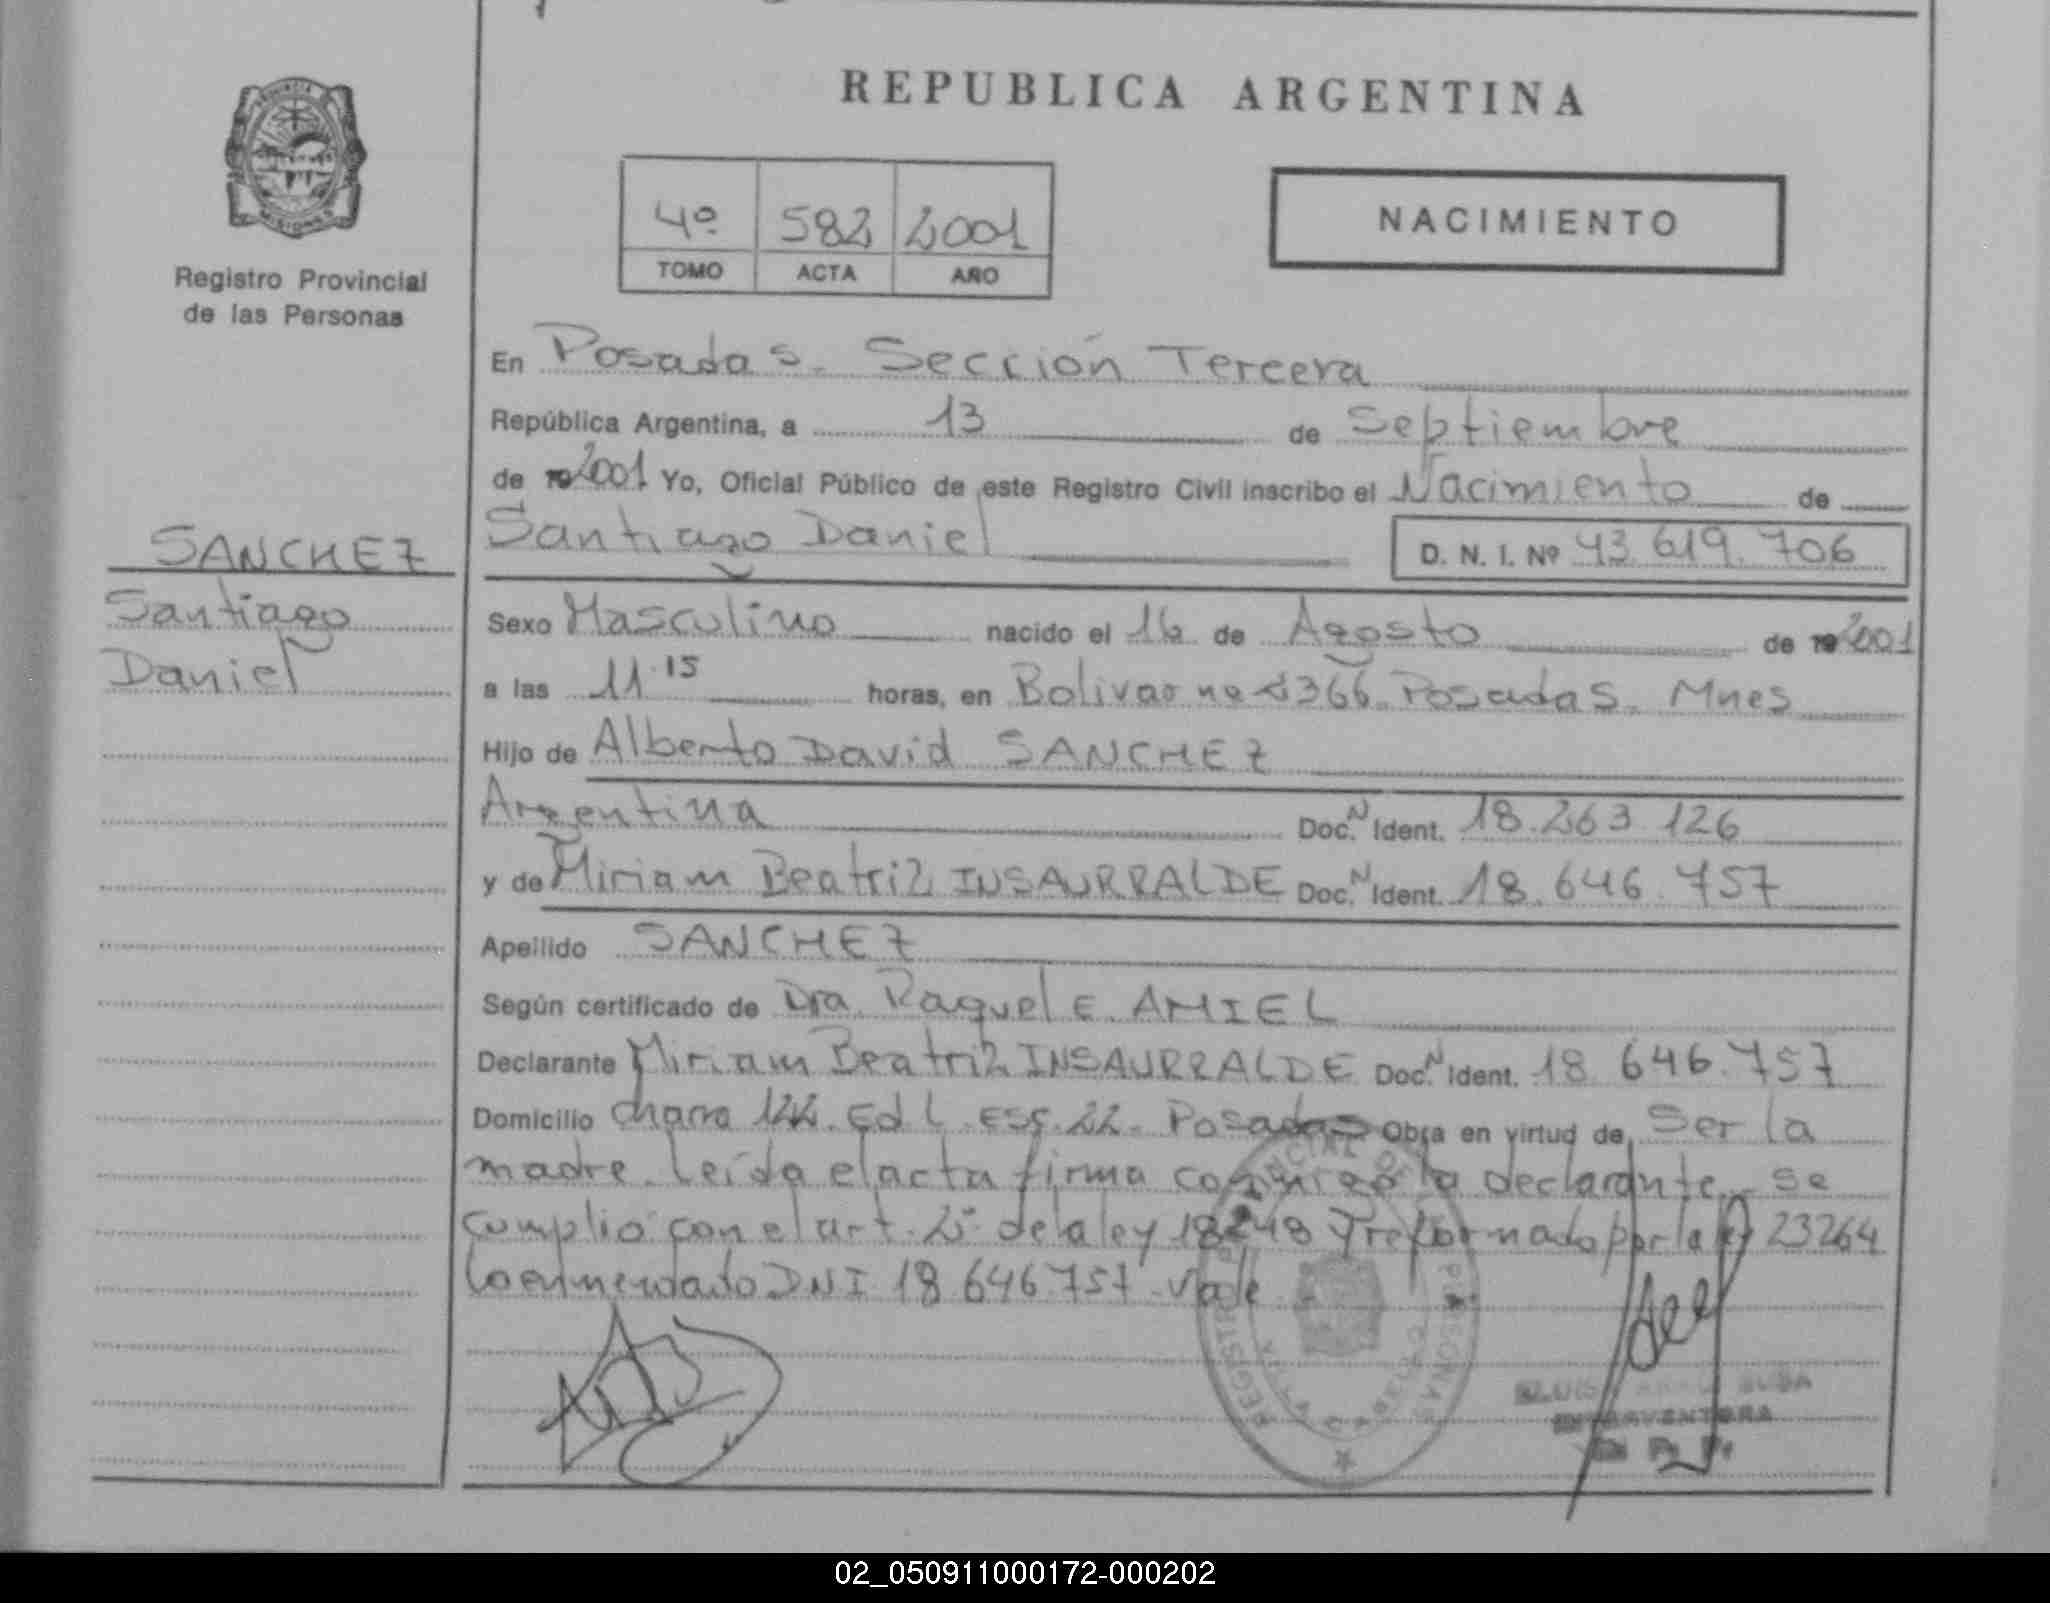 REPUBLICA ARGENTINA
4º 582 2001
TOMO ACTA AÑO
NACIMIENTO
PROVINCIA
MISIONES
Registro Provincial
de las Personas
SANCHEZ
Santiago
Daniel
En Posadas. Sección Tercera
República Argentina, a 13 de Septiembre
de 19 2001 Yo, Oficial Público de este Registro Civil inscribo el Nacimiento de
Santiago Daniel D. N. I. Nº 43.619.706
Sexo Masculino nacido el 16 de Agosto de 19 2001
a las 11.15 horas, en Bolivar nº 2366. Posadas. Mnes
Hijo de Alberto David SANCHEZ
Argentina Doc. N Ident. 18.263.126
y de Miriam Beatriz INSAURRALDE Doc. N Ident. 18.646.757
Apellido SANCHEZ
Según certificado de Dra. Raquel E. AMIEL
Declarante Miriam Beatriz INSAURRALDE Doc. N Ident. 18.646.757
Domicilio chacra Ed Esc. 22. Posadas Obra en virtud de Ser la
madre. Leida el acta firma conmigo la declarante. Se
cumplio con el art. 2º de la ley 18248 y reformado por la ley 23264
Lo enmendado DNI 18.646.757. Vale
REGISTRO PROVINCIAL DE PERSONAS
INTERVENTORA
02_050911000172-000202